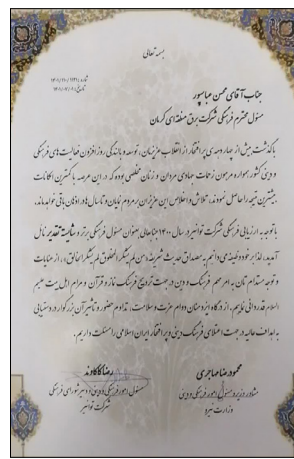 بسمه تعالی
جناب آقای محسن عباسپور
مسئول محترم فرهنگی شرکت برق منطقه‌ای کرمان
باگذشت بیش از چهار دهه‌ی پر افتخار از انقلاب عزیزمان، توسعه و بالندگی روزافزون فعالیت‌های فرهنگی
و دینی کشور همواره مرهون زحمات جهادی مردان و زنان مخلصی بوده که در این عرصه با کمترین امکانات
بیشترین نتیجه را حاصل نمودند، تلاش و اخلاص این عزیزان بر مردم نمایان و تا سال‌های در اذهان باقی خواهد ماند.
با توجه به ارزیابی فرهنگی شرکت توانیر در سال ۱۴۰۰ جنابعالی بعنوان مسئول فرهنگی برتر و شایسته تقدیر نایل
آمدید، لذا بر خود وظیفه می‌دانیم به مصداق حدیث شریفه «من لم یشکر المخلوق لم یشکر الخالق»، از عنایات
و توجه مستدام تان به امر مهم فرهنگ و دین در جهت ترویج فرهنگ نماز و قرآن و مرام اهل بیت علیهم
السلام قدردانی نماییم. از درگاه ایزد منان دوام عزت و سلامت، تداوم حضور و تاثیر آن بزرگوار در دستیابی
به اهداف عالیه در جهت اعتلای فرهنگ دینی و پر افتخار ایران اسلامی را مسئلت داریم.
محمود رضا صابری
مشاور وزیر و مسئول امور فرهنگی و دینی
وزارت نیرو
رضا کاکاوند
مسئول امور فرهنگی و دینی و دبیر شورای فرهنگی
شرکت توانیر